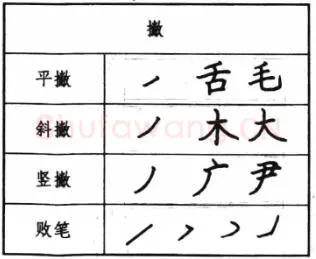 撇
平撇 ㇒ 舌 毛
斜撇 ㇒ 木 大
竖撇 丿 广 尹
败笔